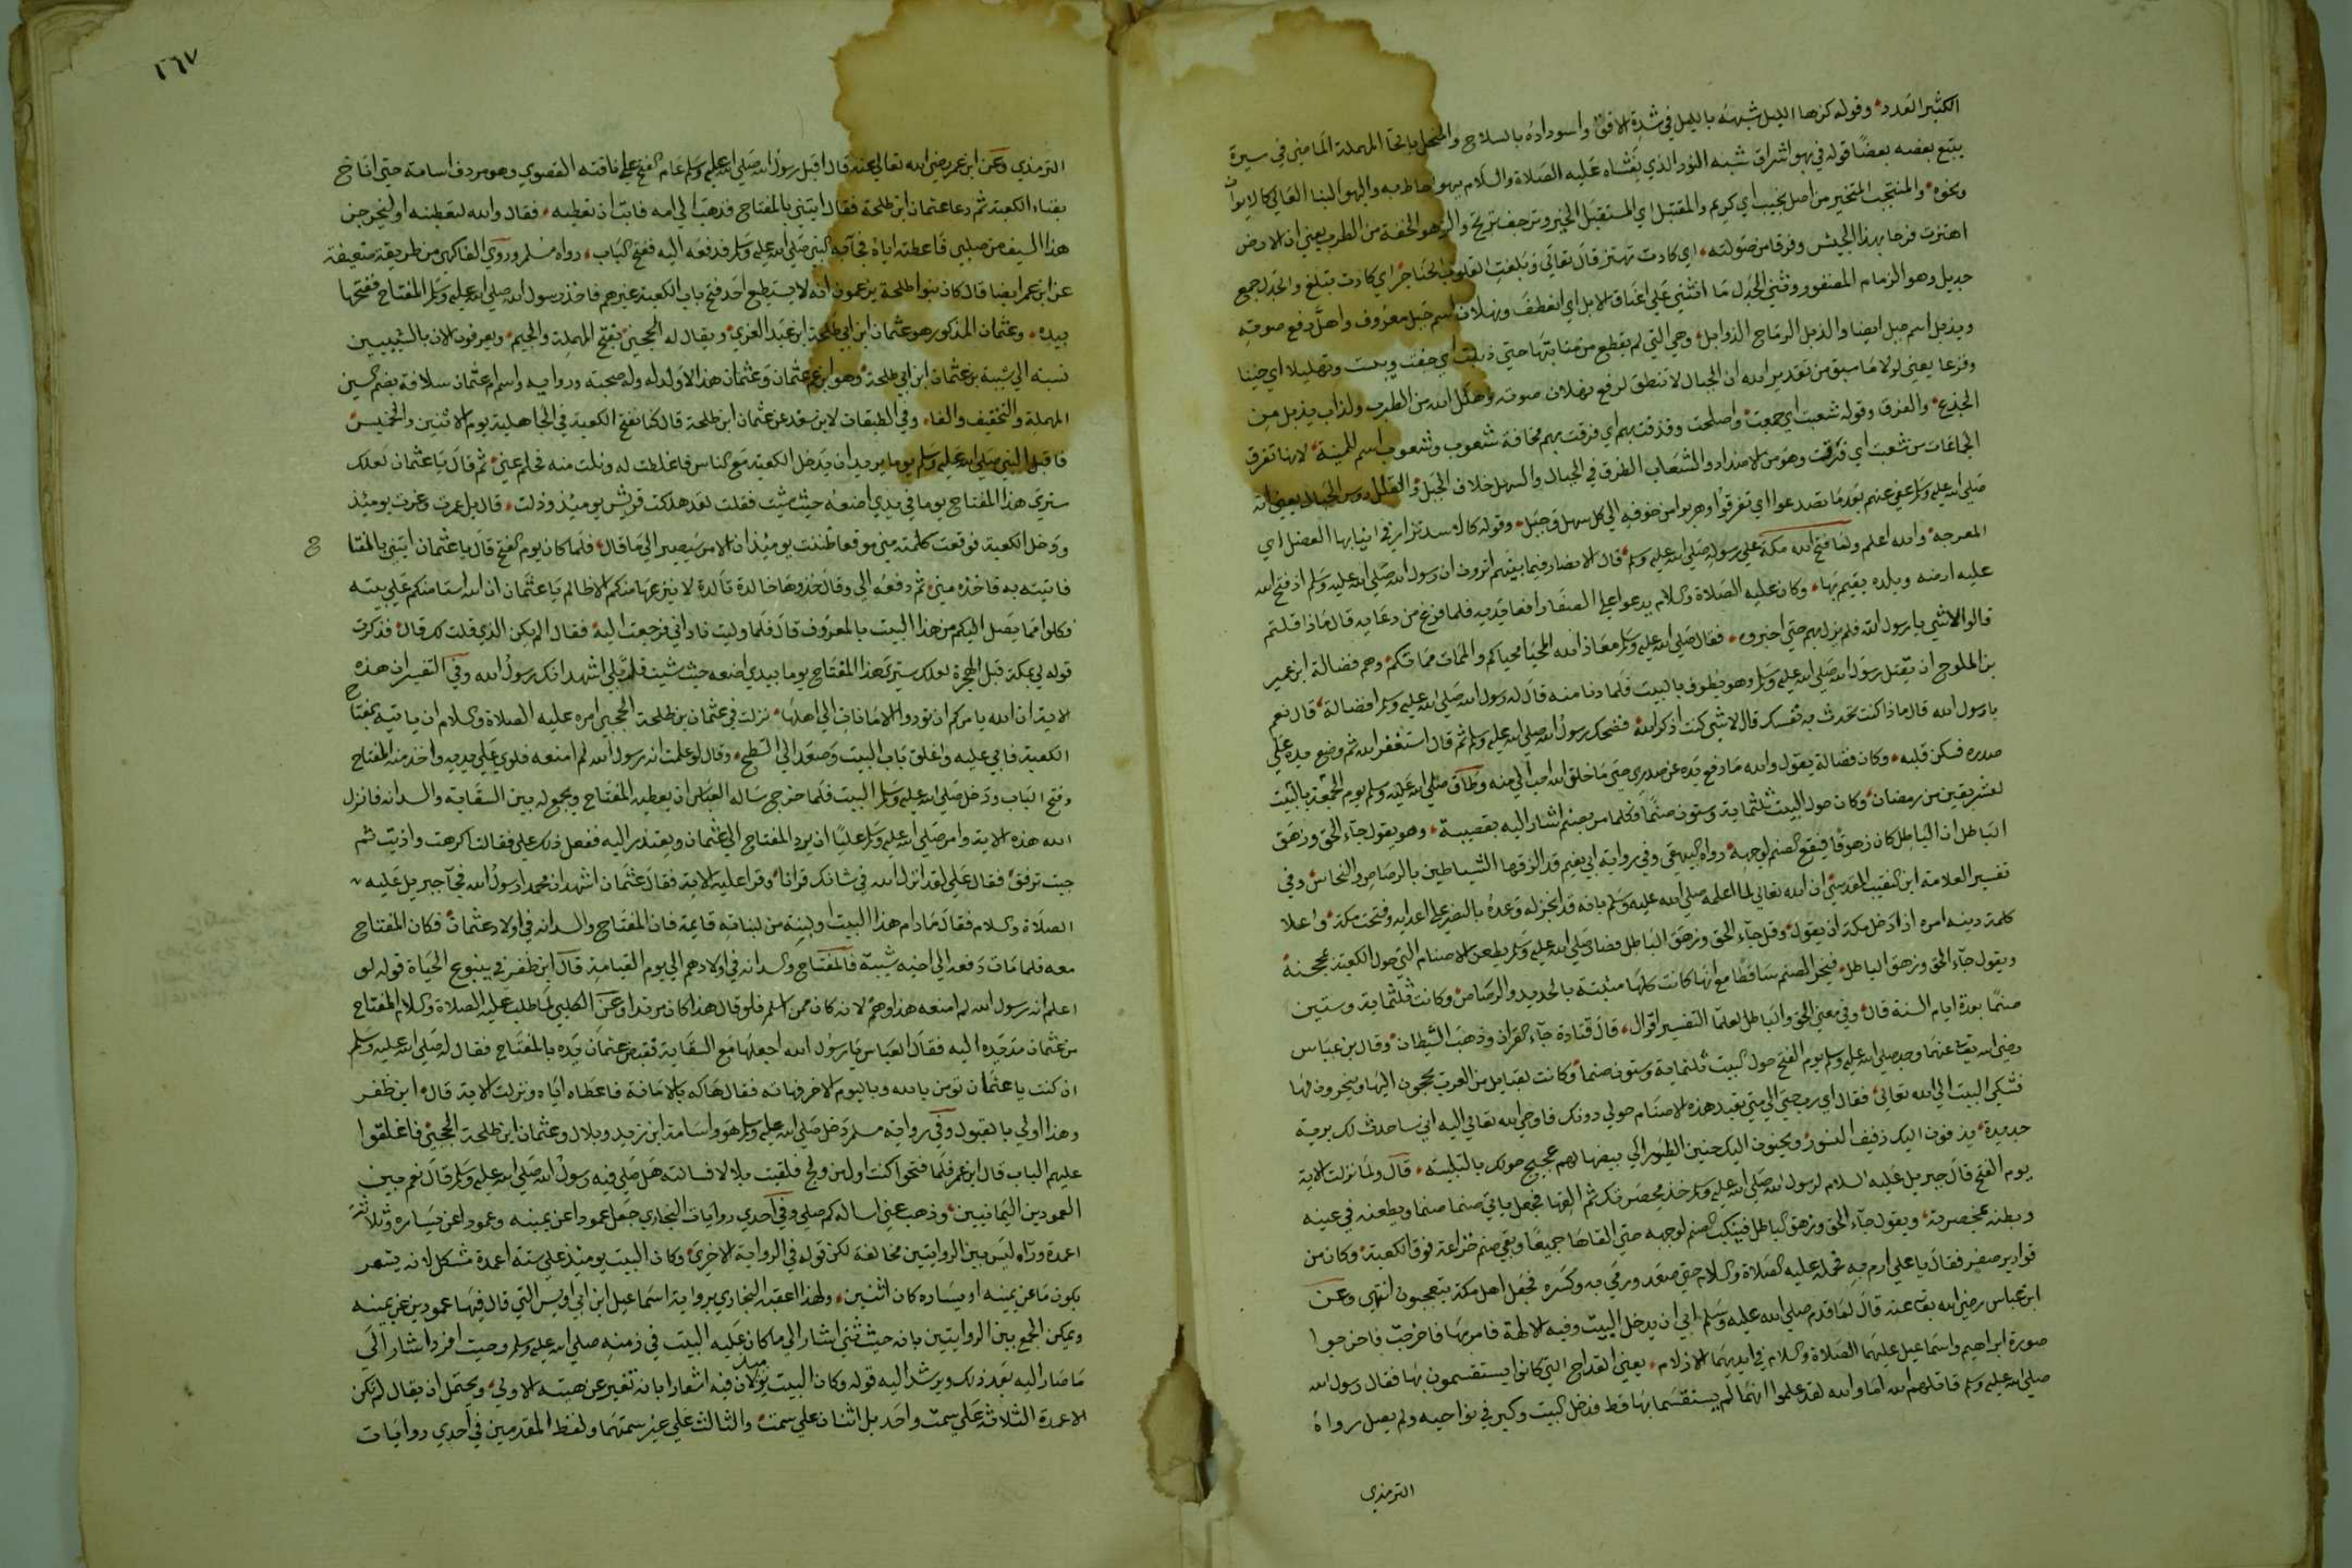 الكثير العدد وقوله كزها الليل شبهه بالليل في شدة الافق واسوداده بالسلاح والمنحل بالحا المهملة الماضين في سيرة
يتبع بعضه بعضا قوله في بهو اشراق شبه النور الذي يغشاه عليه الصلاة والسلام ببهو احاط به والبهو البنا العالي كالايوان
ونحوه والمنتجب المتخير من اصل نجيب اي كريم والمقتبل اي المستقبل الخير وترجف تريج والزهو الخفة من الطرب يعني ان الارض
اهتزت فرحا بهذا الجيش وفرقا من صولته اي كادت تهتز قال تعالي وبلغت القلوب الحناجر اي كادت تبلغ والجدل جمع
جديل وهو الزمام المضفور وتثني الجدل ما انثني علي اعناق الابل اي انعطف وثهلان اسم جبل معروف واهل رفع صوته
ويذبل اسم جبل ايضا والذبل الرماح الذوابل وهي التي لم يقطع من منابتها حتي ذبلت اي جفت ويبست وتهليلا اي جبنا
وفزعا يعني لولا ما سبق من تقدير الله ان الجبال لا تنطق لرفع ثهلان صوته وهلل لله من الطرب ولذاب يذبل من
الجزع والفرق وقوله شعبت اي جمعت واصلحت وقذفت بهم اي فرقت بهم مخافة شعوب وشعوب اسم للمنية لانها تفرق
الجماعات من شعبت اي فرقت وهو من الاضداد والشعاب الطرق في الجبال والسهل خلاف الجبل والقلل روس الجبال يعني انه
صلي الله عليه وسلم عفي عنهم بعد ما تصدعوا اي تفرقوا وهربوا من خوفه الي كل سهل وجبل وقوله كالاسد تزار في انيابها العضل اي
المعوجه والله اعلم ولما فتح الله مكة علي رسوله صلي الله عليه وسلم قال الانصار فيما بينهم اترون ان رسول الله صلي الله عليه وسلم اذ فتح الله
عليه ارضه وبلده يقيم بها وكان عليه الصلاة والسلام يدعوا علي الصفا رافعا يديه فلما فرغ من دعايه قال ماذا قلتم
قالوا لا شي يا رسول الله فلم يزل بهم حتي اخبروه فقال صلي الله عليه وسلم معاذ الله المحيا محياكم والممات مماتكم وهم فضالة ابن عمير
بن الملوح ان يقتل رسول الله صلي الله عليه وسلم وهو يطوف بالبيت فلما دنا منه قال له رسول الله صلي الله عليه وسلم افضالة قال نعم
يا رسول الله قال ماذا كنت تحدث به نفسك قال لا شي كنت اذكر الله فضحك رسول الله صلي الله عليه وسلم ثم قال استغفر الله ثم وضع يده علي
صدره فسكن قلبه وكان فضالة يقول والله ما رفع يده عن صدري حتي ما خلق الله احب الي منه وطاف صلي الله عليه وسلم يوم الجمعة بالبيت
لعشر بقين من رمضان وكان حول البيت ثلثماية وستون صنما فكلما مر بصنم اشار اليه بقضيبه وهو يقول جاء الحق وزهق
الباطل ان الباطل كان زهوقا فيقع الصنم لوجهه رواه البيهقي وفي رواية ابي نعيم قد الزقها الشياطين بالرصاص والنحاس وفي
تفسير العلامة ابن النقيب المقدسي ان الله تعالي لما اعلمه صلي الله عليه وسلم بانه قد انجز له وعده بالنصر علي اعدايه وفتحت مكة واعلا
كلمة دينه امره اذا دخل مكة ان يقول وقل جاء الحق وزهق الباطل فصار صلي الله عليه وسلم يطعن الاصنام التي حول الكعبة بمحجنه
ويقول جاء الحق وزهق الباطل فيخر الصنم ساقطا مع انها كانت كلها مثبتة بالحديد والرصاص وكانت ثلثماية وستين
صنما بعدة ايام السنة قال وفي معني الحق والباطل لعلما التفسير اقوال قال قتادة جاء القران وذهب الشيطان وقال بن عباس
رضي الله تعالي عنهما وجد صلي الله عليه وسلم يوم الفتح حول البيت ثلثماية وستون صنما وكانت لقبايل من العرب يحجون اليها وينحرون لها
فشكي البيت الي الله تعالي فقال اي رب حتي الي متي تعبد هذه الاصنام حولي دونك فاوحي الله تعالي اليه اني ساحدث لك نوبة
جديدة يدفون اليك دفيف النسور ويحنون اليك حنين الطيور الي بيضها لهم عجيج حولك بالتلبية قال ولما نزلت الاية
يوم الفتح قال جبريل عليه السلام لرسول الله صلي الله عليه وسلم خذ مخصرتك ثم القها فجعل ياتي صنما صنما ويطعنه في عينه
وبطنه بمخصرته ويقول جاء الحق وزهق الباطل فينكب الصنم لوجهه حتي القاها جميعا وبقي صنم خزاعة فوق الكعبة وكان من
قوارير صفر فقال يا علي ارم به فحمله عليه الصلاة والسلام حتي صعد ورمي به وكسره فجعل اهل مكة يتعجبون انتهي وعن
ابن عباس رضي الله تعالي عنه قال لما قدم صلي الله عليه وسلم ابي ان يدخل البيت وفيه الالهة فامر بها فاخرجت فاخرجوا
صورة ابراهيم واسماعيل عليهما الصلاة والسلام في ايديهما الازلام يعني القداح التي كانوا يستقسمون بها فقال رسول الله
صلي الله عليه وسلم قاتلهم الله اما والله لقد علموا انهما لم يستقسما بها قط فدخل البيت وكبر في نواحيه ولم يصل رواه
الترمذي
٢٦٧
الترمذي وعن ابن عمر رضي الله تعالي عنه قال اقبل رسول الله صلي الله عليه وسلم عام الفتح علي ناقته القصوي وهو مردف اسامة حتي اناخ
بفناء الكعبة ثم دعا عثمان ابن طلحة فقال ايتني بالمفتاح فذهب الي امه فابت ان تعطيه فقال والله لتعطينه او ليخرجن
هذا السيف من صلبي فاعطته اياه فجاء به النبي صلي الله عليه وسلم فدفعه اليه ففتح الباب رواه مسلم وروي الفاكهي من طريقة ضعيفة
عن ابن عمر ايضا قال كان بنوا طلحة يزعمون انه لا يستطيع احد فتح باب الكعبة غيرهم فاخذ رسول الله صلي الله عليه وسلم المفتاح ففتحها
بيده وعثمان المذكور هو عثمان ابن ابي طلحة ابن عبد العزي ويقال له الحجبي بفتح المهملة والجيم ويعرفون الان بالشيبيين
نسبة الي شيبة بن عثمان ابن ابي طلحة وهو ابن عم عثمان وعثمان هذا لا ولد له وله صحبة ورواية واسم ام عثمان سلافة بضم السين
المهملة والتخفيف والفاء وفي الطبقات لابن سعد عن عثمان ابن طلحة قال كنا نفتح الكعبة في الجاهلية يوم الاثنين والخميس
فاقبل النبي صلي الله عليه وسلم يوما يريد ان يدخل الكعبة مع الناس فاغلظت له ونلت منه فحلم عني ثم قال يا عثمان لعلك
ستري هذا المفتاح يوما في يدي اضعه حيث شيت فقلت لقد هلكت قريش يوميذ وذلت قال بل عمرت وعزت يوميذ
ودخل الكعبة فوقعت كلمته مني موقعا ظننت يوميذ ان الامر سيصير الي ما قال فلما كان يوم الفتح قال يا عثمان ايتني بالمفتا
ح
فاتيته به فاخذه مني ثم دفعه الي وقال خذوها خالدة تالدة لا ينزعها منكم الا ظالم يا عثمان ان الله استامنكم علي بيته
فكلوا مما يصل اليكم من هذا البيت بالمعروف قال فلما وليت ناداني فرجعت اليه فقال الم يكن الذي قلت لك قال فذكرت
قوله لي بمكة قبل الهجرة لعلك ستري هذا المفتاح يوما بيدي اضعه حيث شيت قلت بلي اشهد انك رسول الله وفي التفسير ان هذه
الاية ان الله يامركم ان تودوا الامانات الي اهلها نزلت في عثمان بن طلحة الحجبي امره عليه الصلاة والسلام ان ياتيه بمفتاح
الكعبة فابي عليه واغلق باب البيت وصعد الي السطح وقال لو علمت انه رسول الله لم امنعه فلوي علي يديه واخذ منه المفتاح
وفتح الباب ودخل صلي الله عليه وسلم البيت فلما خرج ساله العباس ان يعطيه المفتاح ويجمع له بين السقاية والسدانه فانزل
الله هذه الاية وامر صلي الله عليه وسلم عليا ان يرد المفتاح الي عثمان ويعتذر اليه ففعل ذلك علي فقال اكرهت واذيت ثم
جيت ترفق فقال علي لقد انزل الله في شانك قرانا وقرا عليه الاية فقال عثمان اشهد ان محمدا رسول الله فجاء جبريل عليه
الصلاة والسلام فقال مادام هذا البيت او لبنة من لبناته قايمة فان المفتاح والسدانه في اولاد عثمان فكان المفتاح
معه فلما مات دفعه الي اخيه شيبة فالمفتاح والسدانه في اولادهم الي يوم القيامة قال ابن ظفر في ينبوع الحياة قوله لو
اعلم انه رسول الله لم امنعه هذا وهم لانه كان ممن اسلم فلو قال هذا كان مرتدا وعن الكلبي لما طلب عليه الصلاة والسلام المفتاح
من عثمان مد يده اليه فقال العباس يا رسول الله اجعلها مع السقاية فقبض عثمان يده بالمفتاح فقال له صلي الله عليه وسلم
ان كنت يا عثمان تومن بالله وباليوم الاخر فهاته فقال هاكه بالامانة فاعطاه اياه ونزلت الاية قال ابن ظفر
وهذا اولي بالقبول وفي رواية مسلم دخل صلي الله عليه وسلم هو واسامة ابن زيد وبلال وعثمان ابن طلحة الحجبي فاغلقوا
عليهم الباب قال ابن عمر فلما فتحوا كنت اول من ولج فلقيت بلالا فسالته هل صلي فيه رسول الله صلي الله عليه وسلم قال نعم بين
العمودين اليمانيين وذهب عني اساله كم صلي وفي احدي روايات البخاري جعل عمودا عن يمينه وعمودا عن يساره وثلاثة
اعمدة وراه ليس بين الروايتين مخالفة لكن قوله في الرواية الاخري وكان البيت يوميذ علي ستة اعمدة مشكل لانه يشعر
بكون ما عن يمينه او يساره كان اثنين ولهذا اعقبه البخاري برواية اسماعيل ابن ابي اويس التي قال فيها عمودين عن يمينه
ويمكن الجمع بين الروايتين بانه حيث ثني اشار الي ما كان عليه البيت في زمنه صلي الله عليه وسلم وحيث افرد اشار الي
ما صار اليه بعد ذلك ويرشد اليه قوله وكان البيت يوميذ لان فيه اشعارا بانه تغير عن هيته الاولي ويحتمل ان يقال لم تكن
الاعمدة الثلاثة علي سمت واحد بل اثنان علي سمت والثالث علي غير سمتهما ولفظ المقدمين في احدي روايات